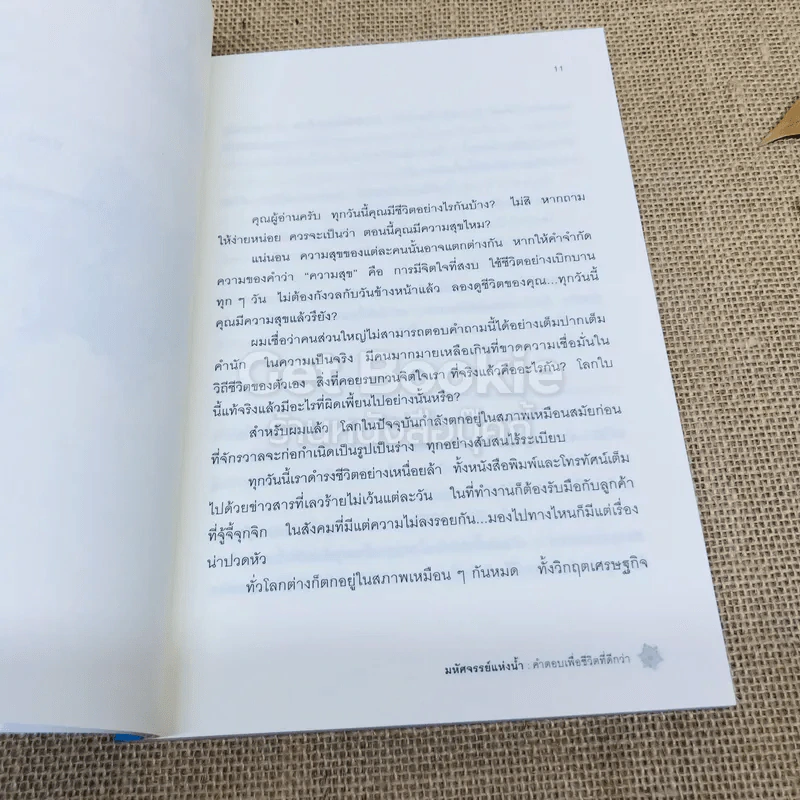 11
คุณผู้อ่านครับ ทุกวันนี้คุณมีชีวิตอย่างไรกันบ้าง? ไม่สิ หากถาม
ให้ง่ายหน่อย ควรจะเป็นว่า ตอนนี้คุณมีความสุขไหม?
แน่นอน ความสุขของแต่ละคนนั้นอาจแตกต่างกัน หากให้คำจำกัด
ความของคำว่า “ความสุข” คือ การมีจิตใจที่สงบ ใช้ชีวิตอย่างเบิกบาน
ทุก ๆ วัน ไม่ต้องกังวลกับวันข้างหน้าแล้ว ลองดูชีวิตของคุณ...ทุกวันนี้
คุณมีความสุขแล้วรึยัง?
ผมเชื่อว่าคนส่วนใหญ่ไม่สามารถตอบคำถามนี้ได้อย่างเต็มปากเต็ม
คำนัก ในความเป็นจริง มีคนมากมายเหลือเกินที่ขาดความเชื่อมั่นใน
วิถีชีวิตของตัวเอง สิ่งที่คอยรบกวนจิตใจเรา ที่จริงแล้วคืออะไรกัน? โลกใบ
นี้แท้จริงแล้วมีอะไรที่ผิดเพี้ยนไปอย่างนั้นหรือ?
สำหรับผมแล้ว โลกในปัจจุบันกำลังตกอยู่ในสภาพเหมือนสมัยก่อน
ที่จักรวาลจะก่อกำเนิดเป็นรูปเป็นร่าง ทุกอย่างสับสนไร้ระเบียบ
ทุกวันนี้เราดำรงชีวิตอย่างเหนื่อยล้า ทั้งหนังสือพิมพ์และโทรทัศน์เต็ม
ไปด้วยข่าวสารที่เลวร้ายไม่เว้นแต่ละวัน ในที่ทำงานก็ต้องรับมือกับลูกค้า
ที่จู้จี้จุกจิก ในสังคมที่มีแต่ความไม่ลงรอยกัน...มองไปทางไหนก็มีแต่เรื่อง
น่าปวดหัว
ทั่วโลกต่างก็ตกอยู่ในสภาพเหมือน ๆ กันหมด ทั้งวิกฤตเศรษฐกิจ
มหัศจรรย์แห่งน้ำ : คำตอบเพื่อชีวิตที่ดีกว่า
Get Bookie
ร้านหนังสือกุ๊กกี้